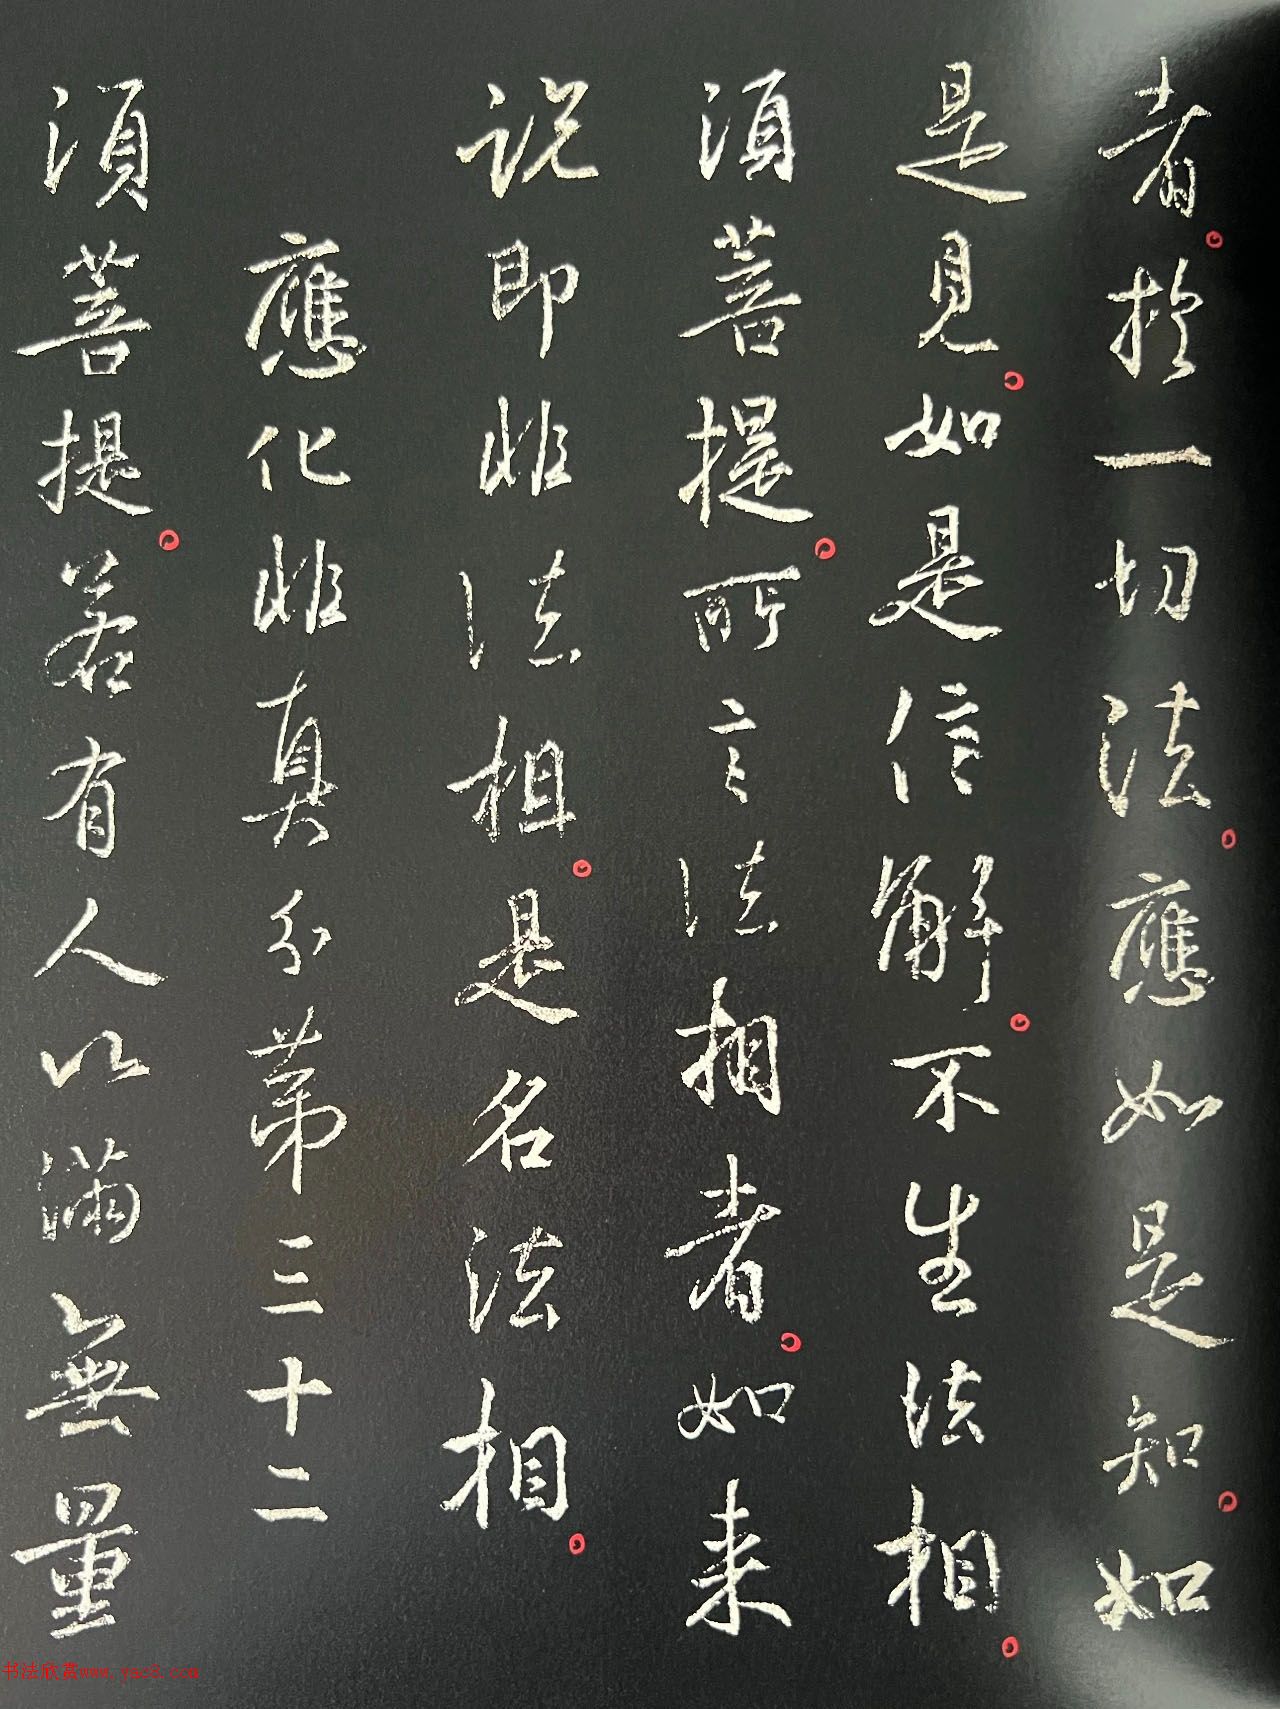 者。於一切法。應如是知。如
是見。如是信解。不生法相。
須菩提。所言法相者。如来
说即非法相。是名法相。
應化非真分第三十二
須菩提。若有人以满無量
书法欣赏www.yac8.com